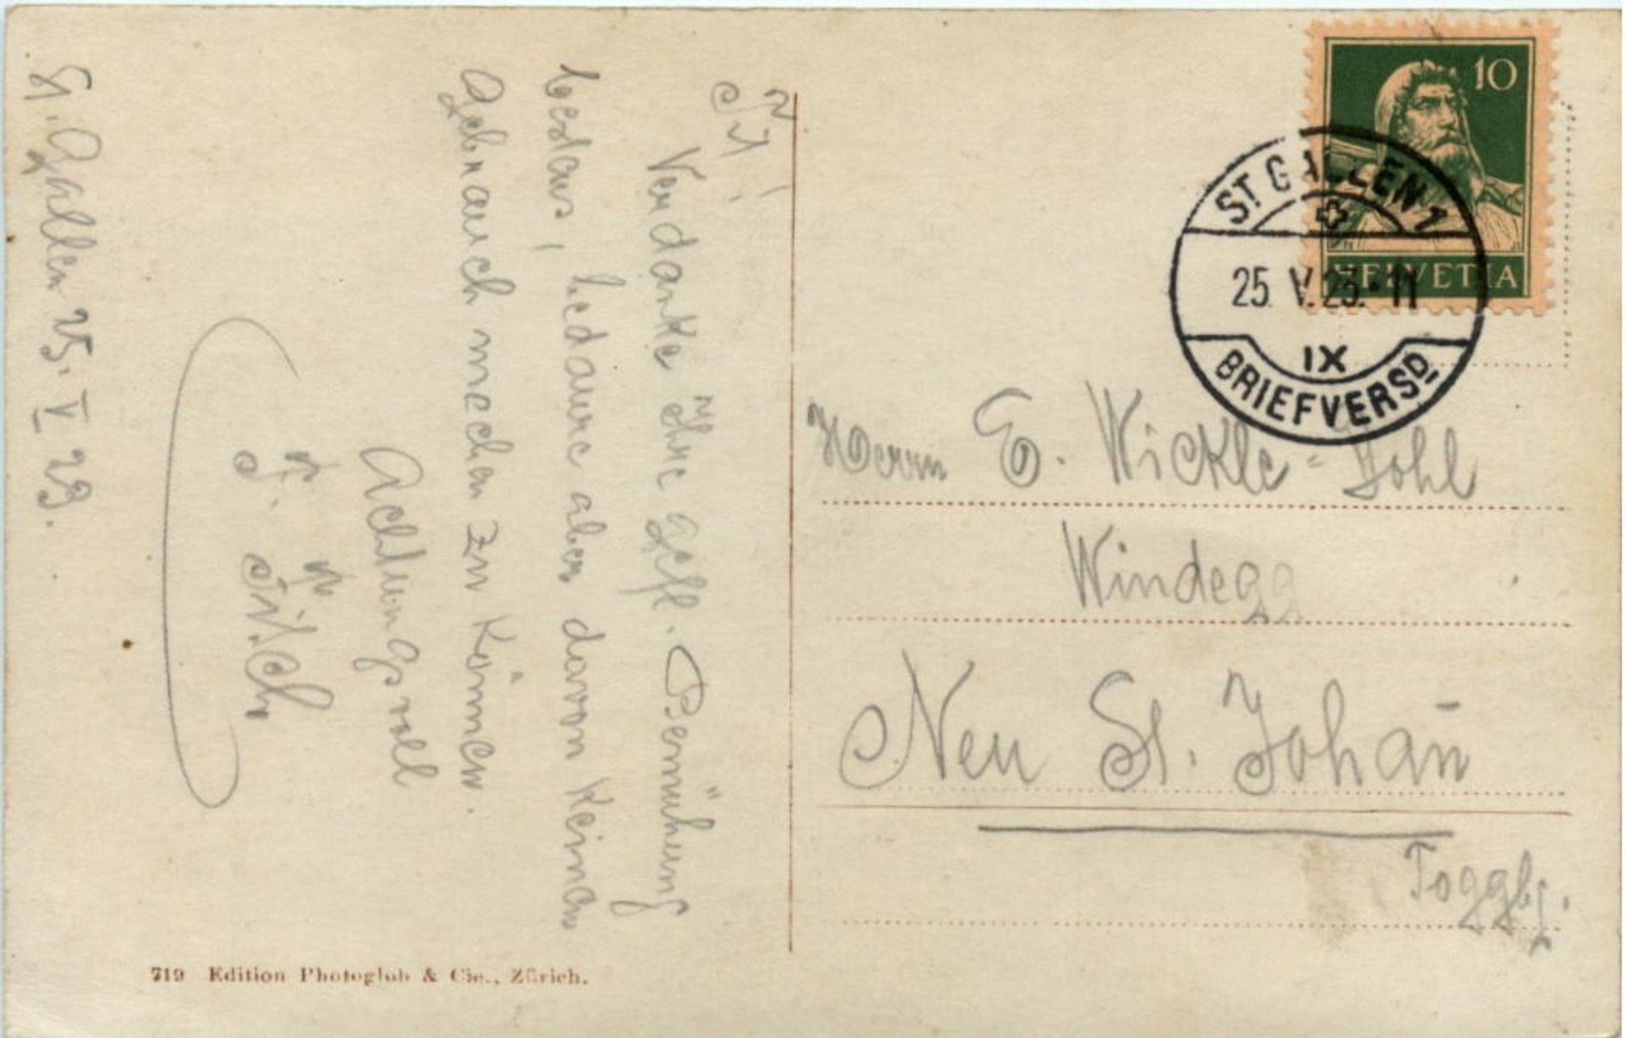 St. Gallen 25. V 23.
Verdanke Ihre gefl. Bemühung
bestens, bedaure aber davon keinen
Gebrauch machen zu können.
Achtungsvoll
J.
719 Edition Photoglob & Cie., Zürich.
10
HELVETIA
ST. GALLEN 1
25. V. 23.-11
IX
BRIEFVERSD.
Herrn E. Wickle-Bohl
Windegg
Neu St. Johañ
Toggbg.